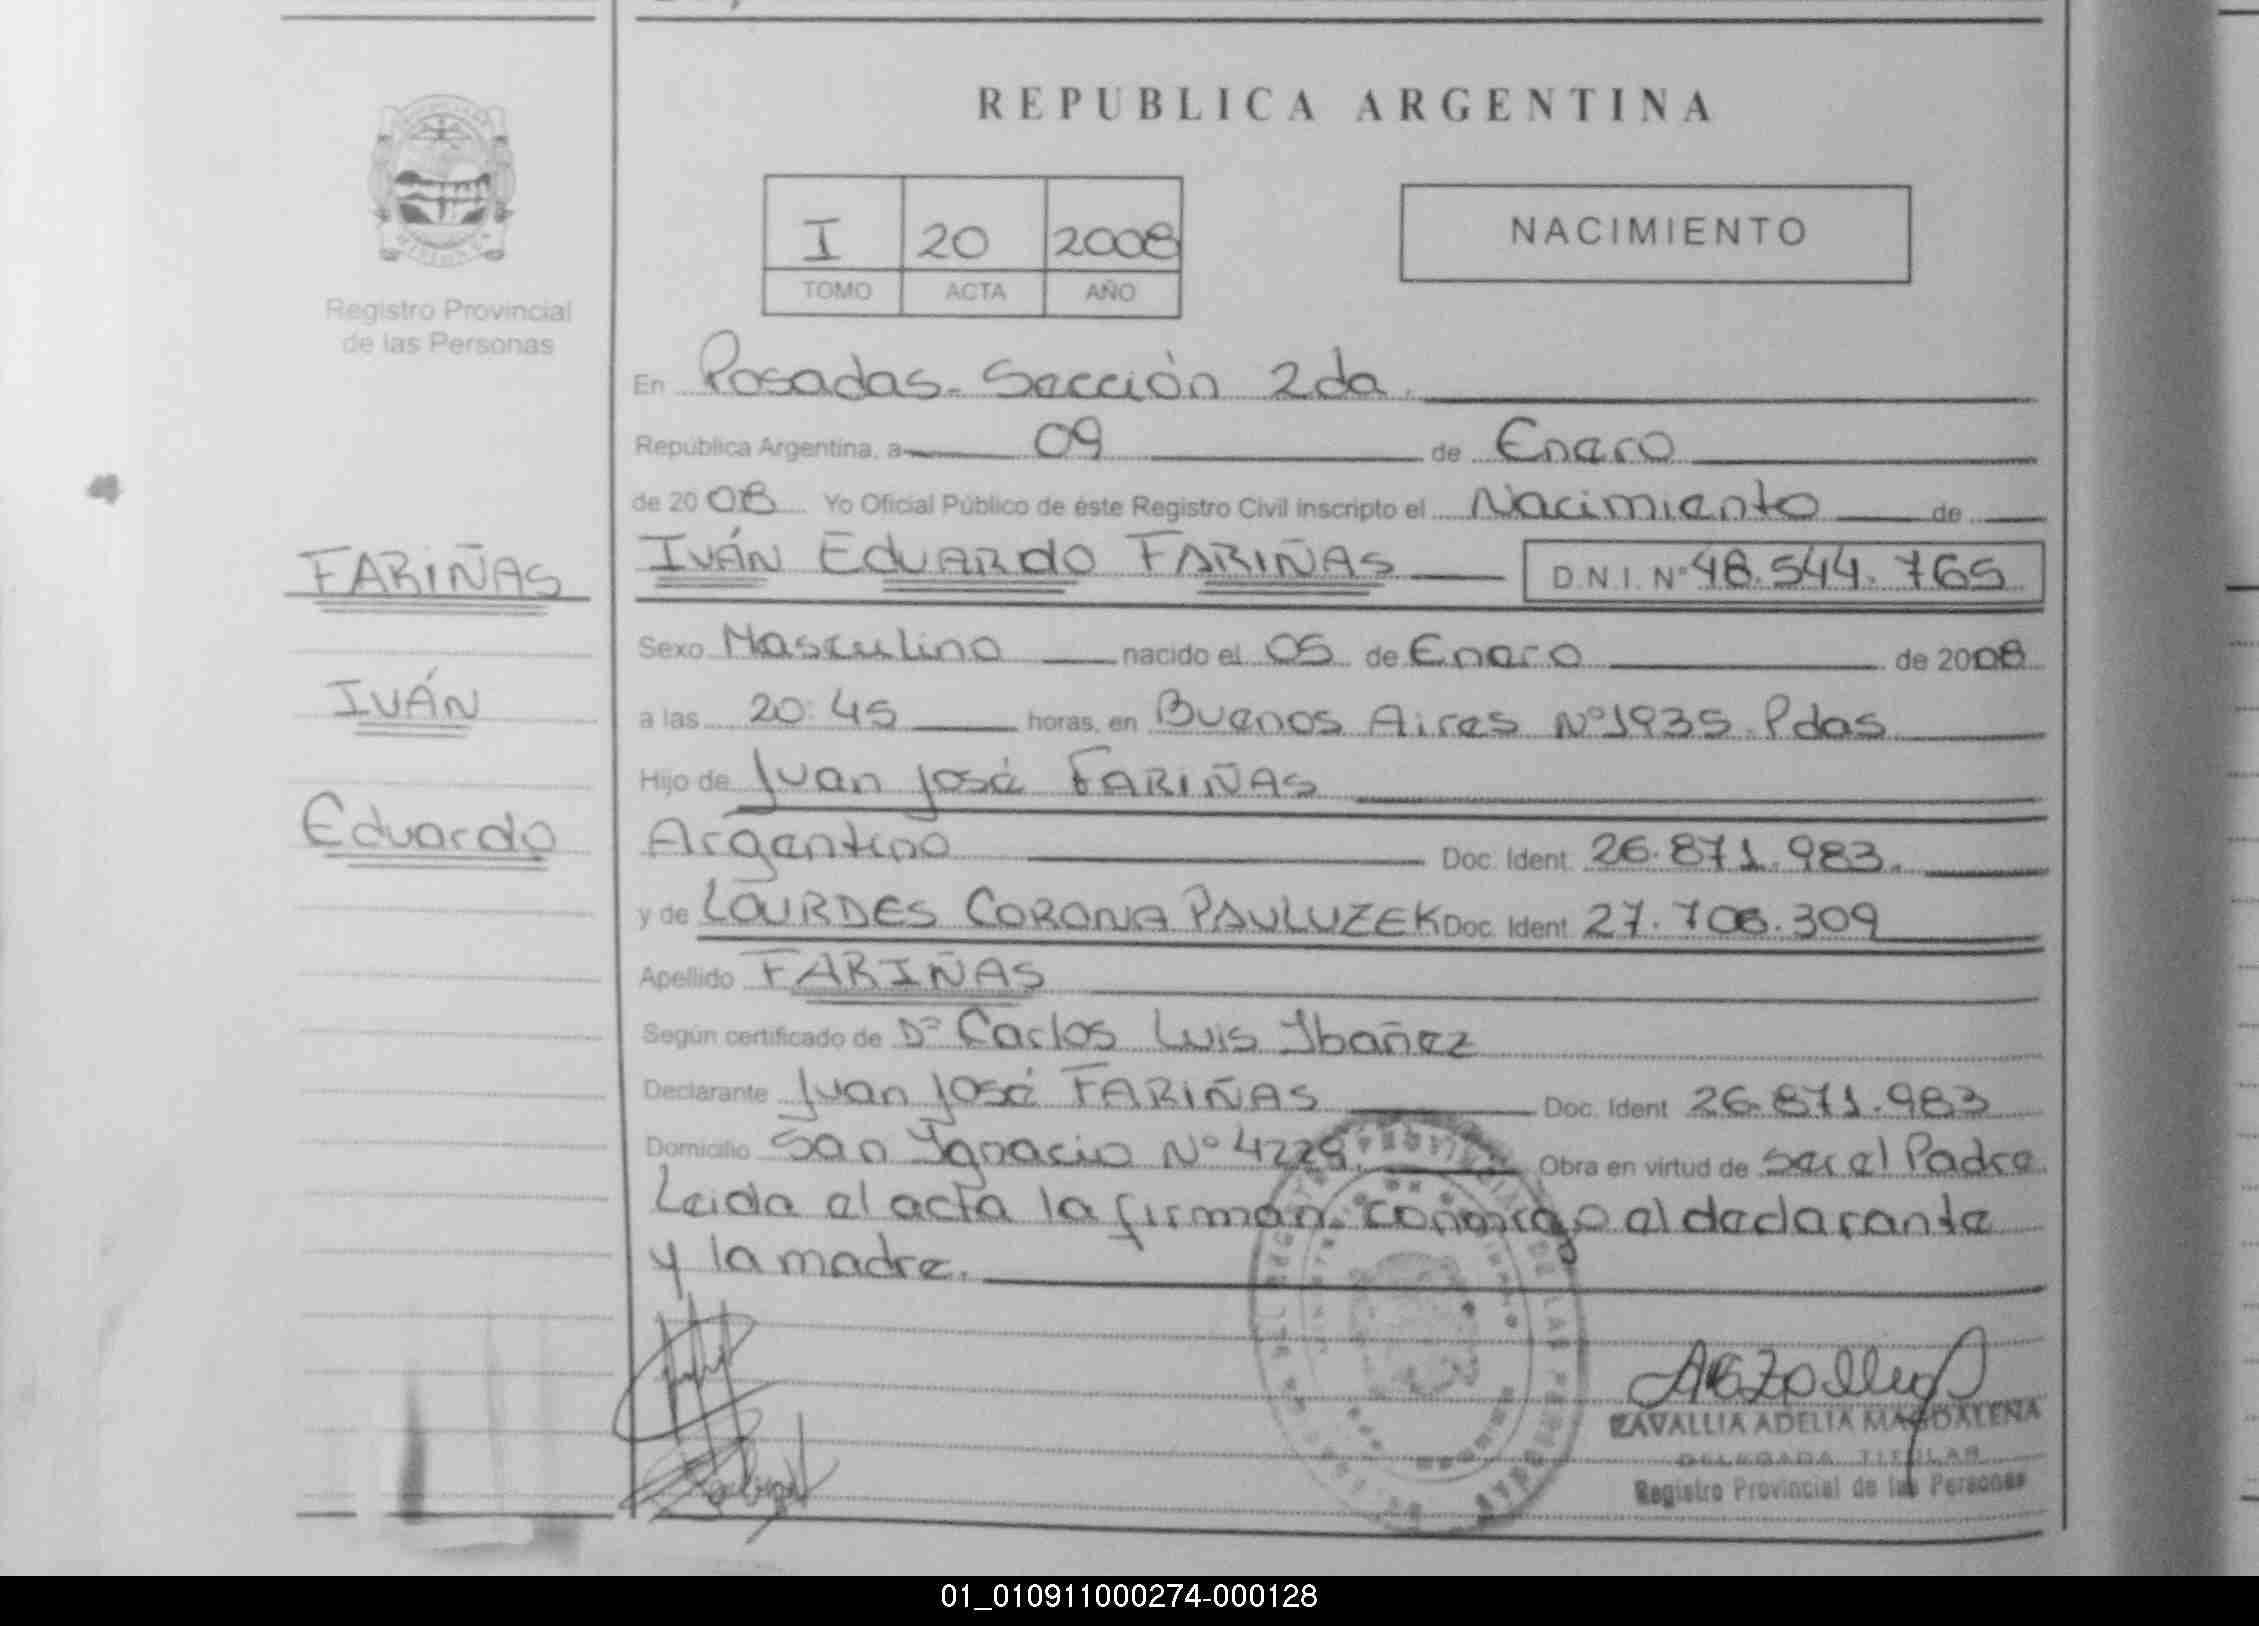 REPUBLICA ARGENTINA
I 20 2008
TOMO ACTA AÑO
NACIMIENTO
Registro Provincial
de las Personas
En Posadas - Sección 2da.
República Argentina, a 09 de Enero
de 2008 Yo Oficial Público de éste Registro Civil inscripto el Nacimiento de
IVÁN EDUARDO FARIÑAS D.N.I. Nº 48.544.765
FARIÑAS
IVÁN
Eduardo
Sexo Masculino nacido el 05 de Enero de 2008
a las 20:45 horas, en Buenos Aires Nº 1935. Pdas
Hijo de Juan José FARIÑAS
Argentino Doc. Ident. 26.871.983.
y de LOURDES CORONA PAULUZEK Doc. Ident. 27.708.309
Apellido FARIÑAS
Según certificado de Dº Carlos Luis Ibañez
Declarante Juan José FARIÑAS Doc. Ident 26.871.983
Domicilio San Ignacio Nº 4229. Obra en virtud de ser el Padre
Leida el acta la firman conmigo el declarante
y la madre.
ZAVALLIA ADELIA MAGDALENA
DELEGADA TITULAR
Registro Provincial de las Personas
01_010911000274-000128